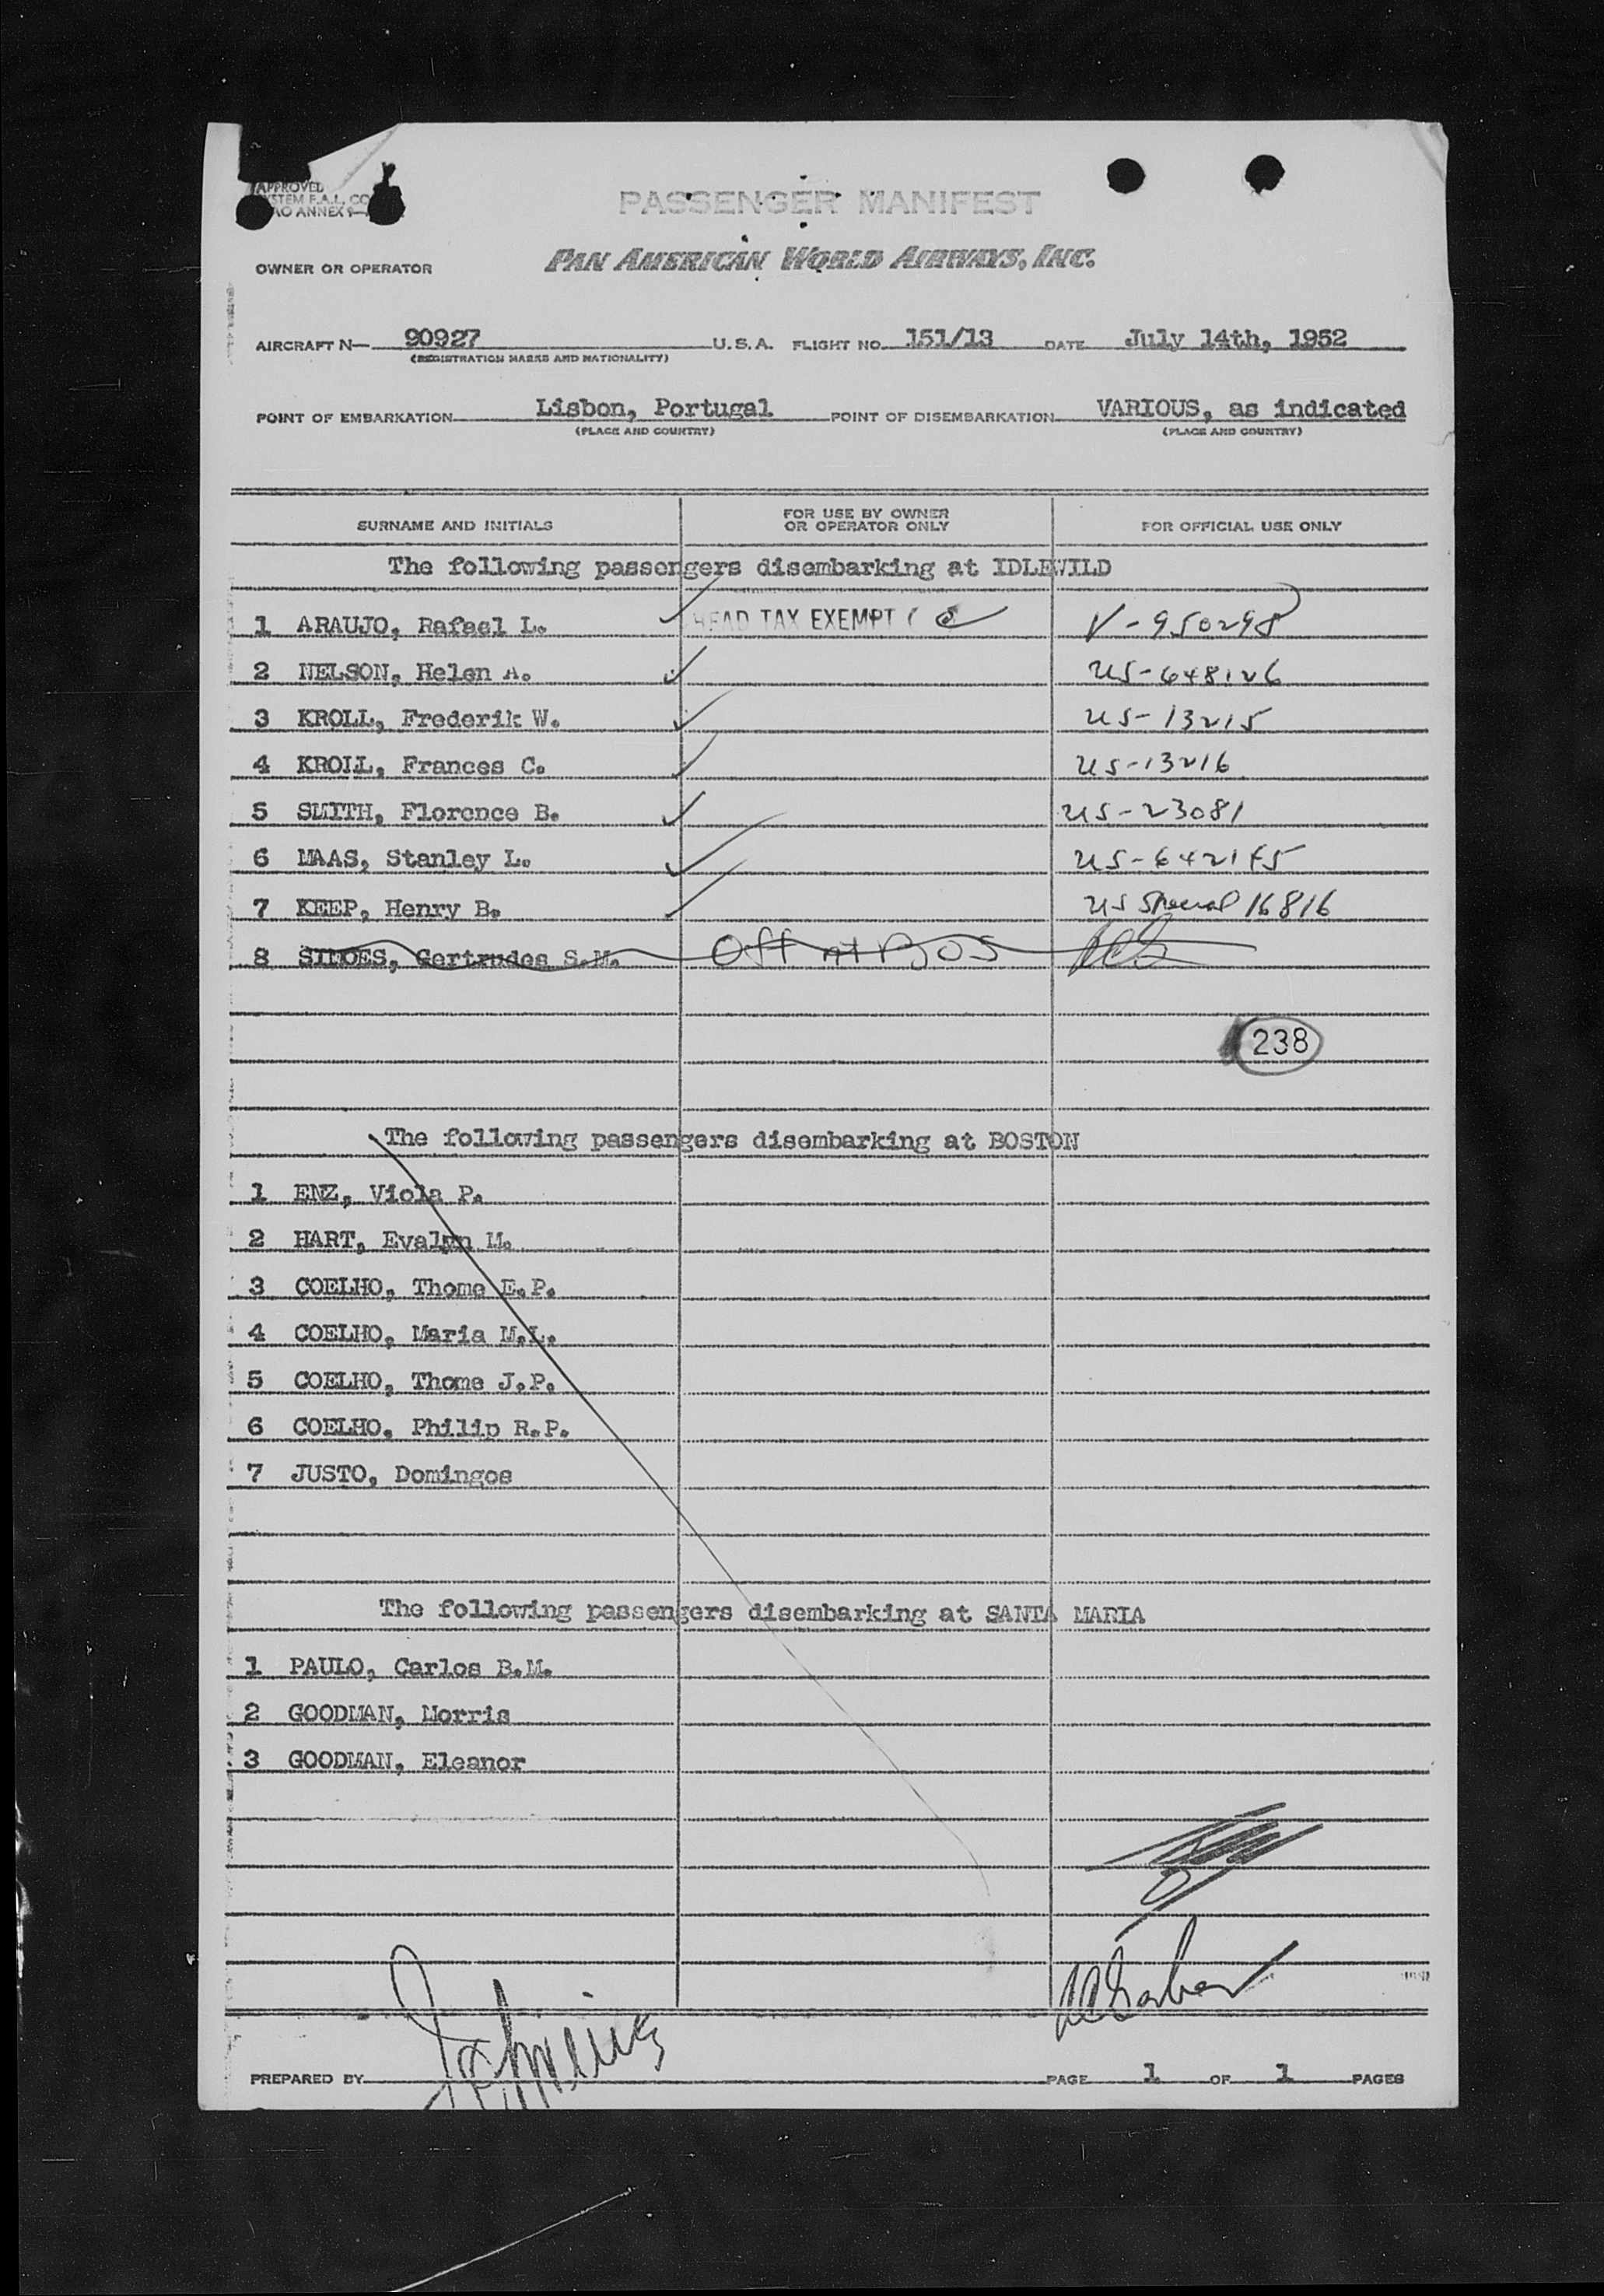 APPROVED
STEM F.A.L. CO
AO ANNEX 9
PASSENGER MANIFEST
OWNER OR OPERATOR PAN AMERICAN WORLD AIRWAYS, INC.
AIRCRAFT N— 90927 U.S.A. FLIGHT NO. 151/13 DATE July 14th, 1952
(REGISTRATION MARKS AND NATIONALITY)
POINT OF EMBARKATION Lisbon, Portugal POINT OF DISEMBARKATION VARIOUS, as indicated
(PLACE AND COUNTRY) (PLACE AND COUNTRY)
SURNAME AND INITIALS FOR USE BY OWNER OR OPERATOR ONLY FOR OFFICIAL USE ONLY
The following passengers disembarking at IDLEWILD
1 ARAUJO, Rafael L. HEAD TAX EXEMPT V-950298
2 NELSON, Helen A. US-648126
3 KROLL, Frederik W. US-13215
4 KROLL, Frances C. US-13216
5 SMITH, Florence B. US-23081
6 MAAS, Stanley L.
7 KEEP, Henry B. US Special 16816
8 SIMOES, Gertrudes S.M. Off at BOS
238
The following passengers disembarking at BOSTON
1 ENZ, Viola P.
2 HART, Evalyn M.
3 COELHO, Thome E.P.
4 COELHO, Maria M.L.
5 COELHO, Thome J.P.
6 COELHO, Philip R.P.
7 JUSTO, Domingos
The following passengers disembarking at SANTA MARIA
1 PAULO, Carlos B.M.
2 GOODMAN, Morris
3 GOODMAN, Eleanor
PREPARED BY PAGE 1 OF 1 PAGES